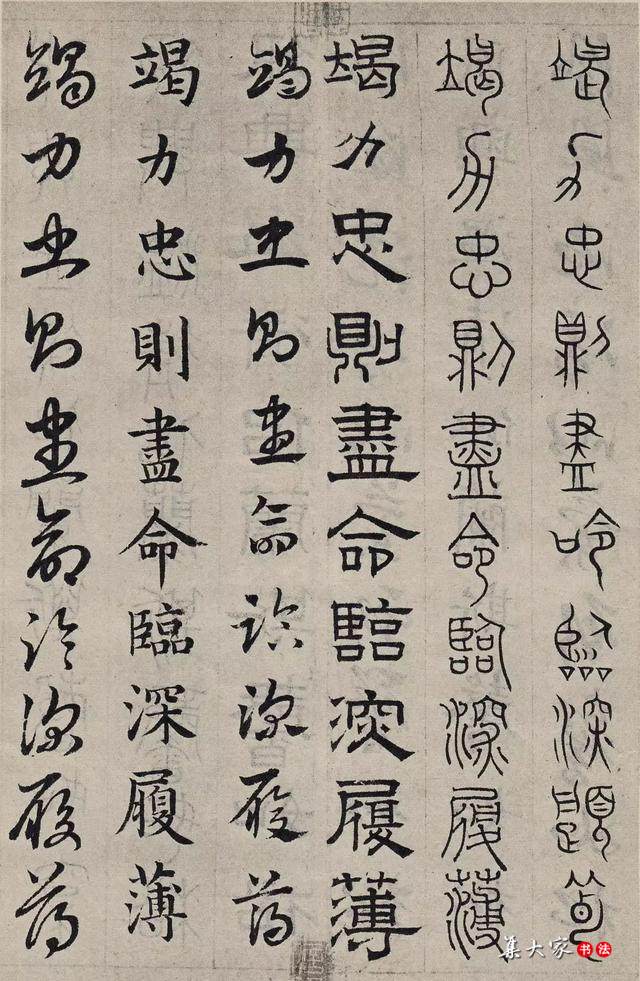 竭力忠則盡命臨深履薄
竭力忠則盡命臨深履薄
竭力忠則盡命臨深履薄
竭力忠則盡命臨深履薄
竭力忠則盡命臨深履薄
竭力忠則盡命臨深履薄
集大家书法